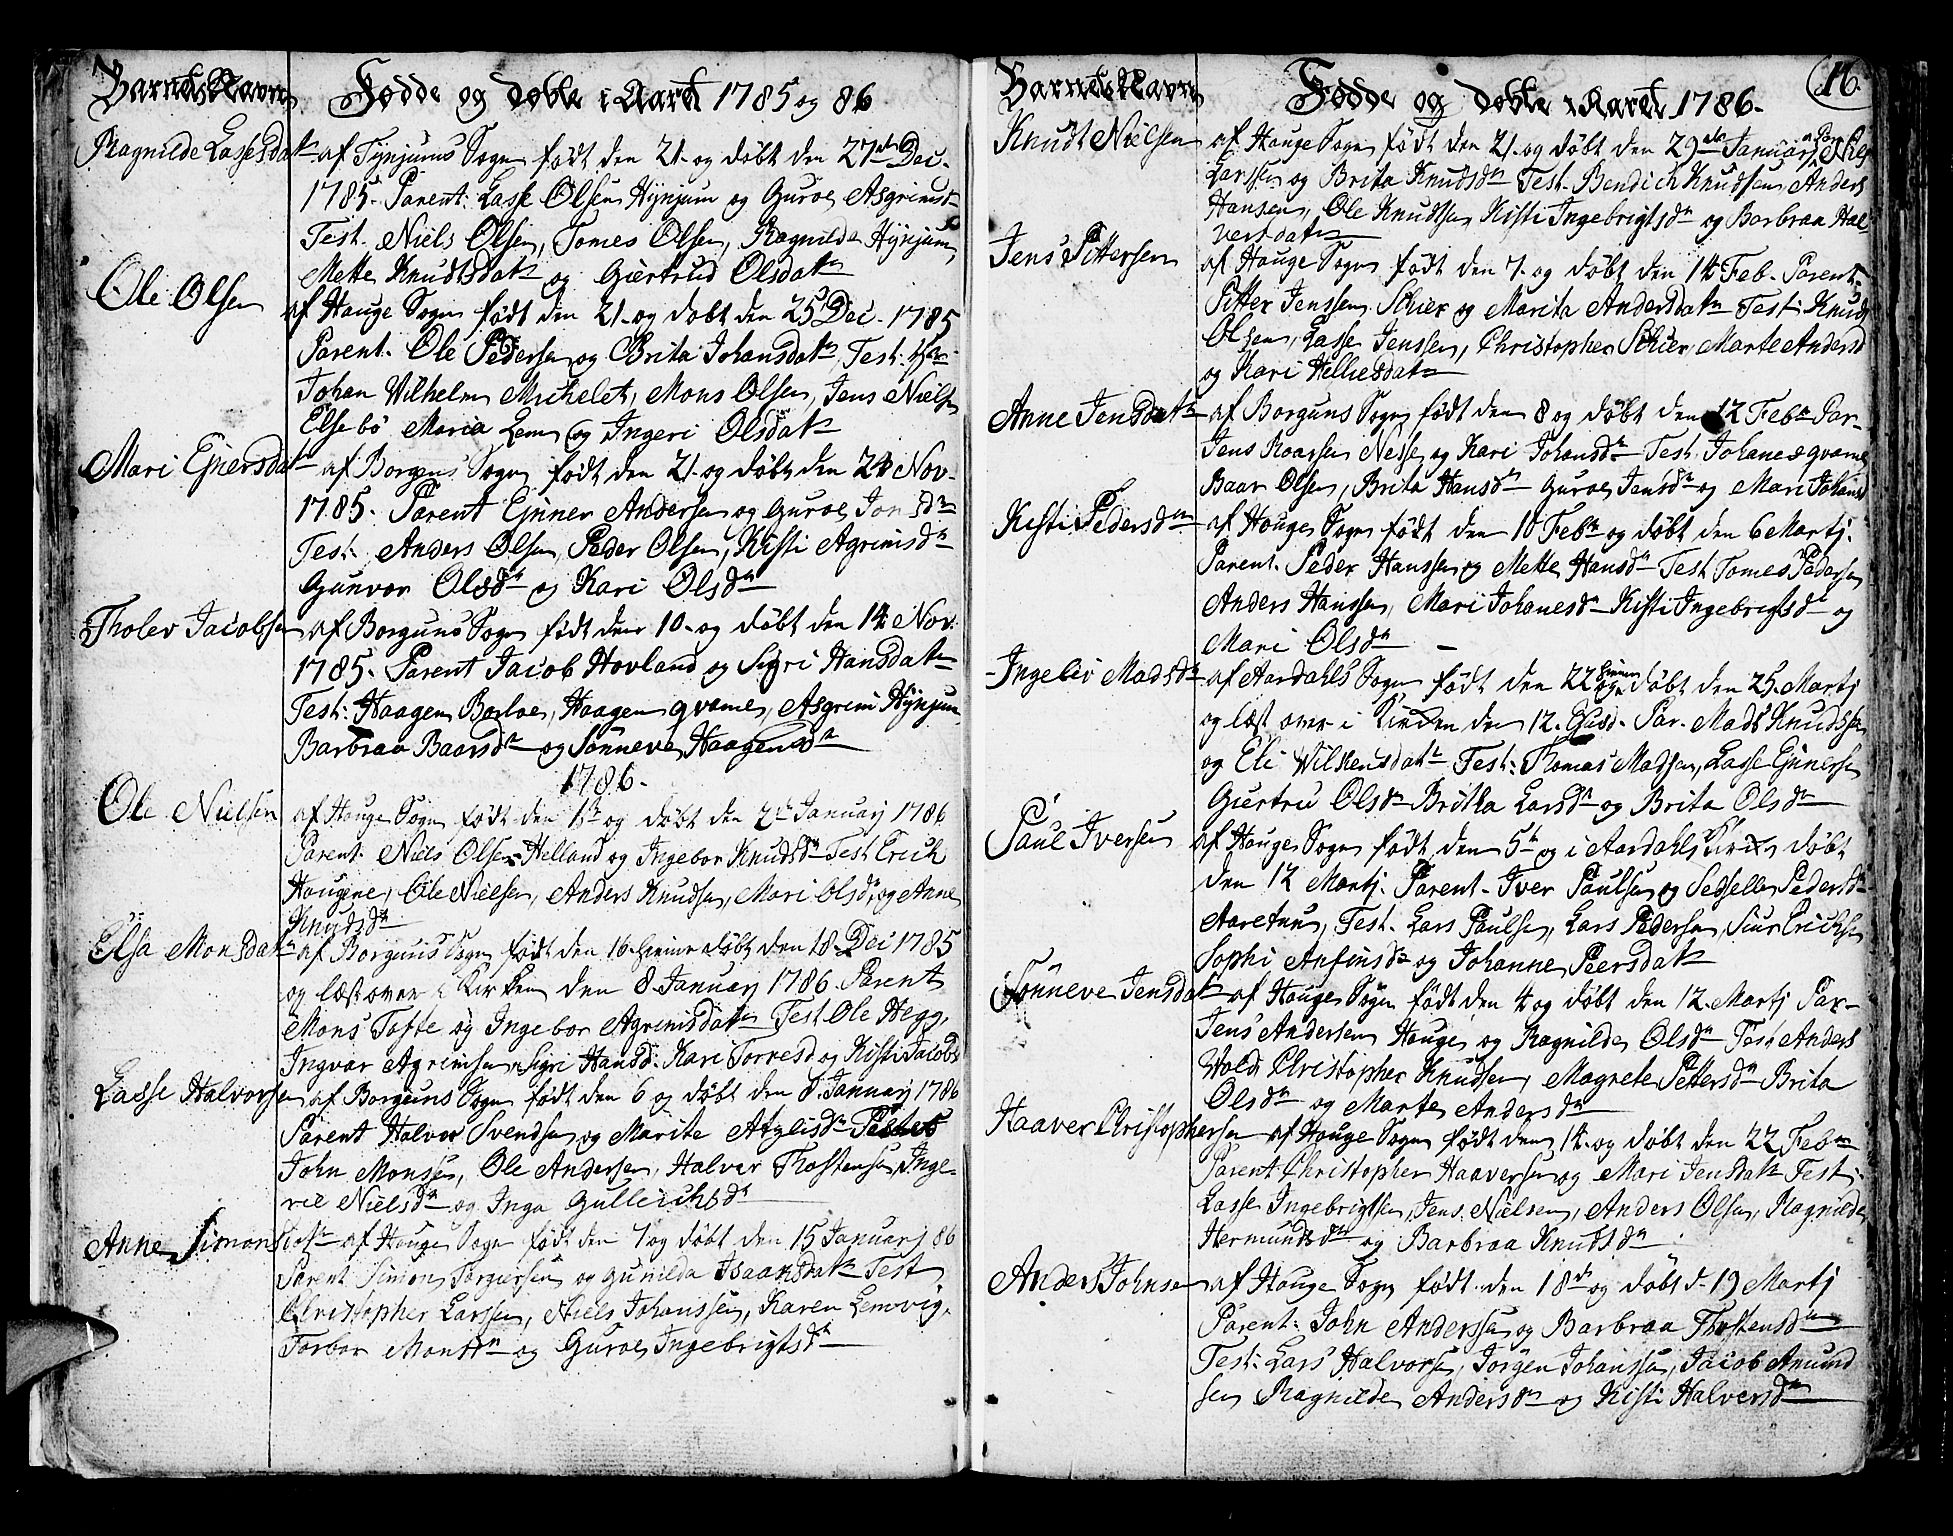 Barnets Navn
Fødde og døbte i Aaret 1785 og 86
Ragnilde Lassesdatr af Tynjums Sogn født den 21. og døbt den 27de Dec.
1785. Parent: Lasse Olsen Hynjum og Guroe Asgrimsd
Test. Niels Olsen, Tomes Olsen, Ragnilde Hynjum,
Mette Knudtsdatr og Giertrud Olsdatr
Ole Olsen af Houge Sogn født den 21. og døbt den 25 Dec. 1785
Parent. Ole Pedersen og Brita Johansdatr, Test: Hr
Johan Wilhelm Michelet, Mons Olsen, Jens Nielsen
Elsebø Maria Lem og Ingeri Olsdatr
Mari Ejnersdatr af Borgens Sogn født den 21. og døbt den 24 Nov.
1785. Parent Ejnner Andersen og Guroe Jonsdr
Test. Anders Olsen, Peder Olsen, Kisti Agrimsdr
Gunvor Olsdr og Kari Olsdr
Tholev Jacobsen af Borguns Sogn født den 10. og døbt den 14 Nov.
1785. Parent Jacob Hovland og Sigri Hansdatr
Test: Haagen Borloe, Haagen qvame, Asgrim Hynjum,
Barbraa Baarsdr og Sønneve Haagensdr
1786.
Ole Nielsen af Houge Sogn født den 1te og døbt den 2de Januarj 1786
Parent. Niels Olsen Helland og Ingebor Knudsdr Test Erich
Hougene, Ole Nielsen, Anders Knudsen, Mari Olsdr og Anne
Knudsdr
Elsa Monsdatr af Borguns Sogn født den 16. hiemedøbt den 18. Dec 1785
og læst over i Kirken den 8 Januarj 1786. Parent
Mons Tofte og Ingebor Agrimsdatr Test Ole Hegg,
Ingvar Agrimsen, Sigri Hansd. Kari Torresd og Kisti Jacobsd
Lasse Halvorsen af Borguns Sogn født den 6 og døbt den 8 Januarj 1786
Parent Halvor Svendsen og Marite Atglisdr Testes
John Monsen, Ole Andersen, Halvar Thostensen, Inge-
rie Nielsdr og Inga Gullerichsdr
Anne Simonsdatr af Houge Sogn født den 7 og døbt den 15 Januarj 86
Parent Simon Torgiersen og Gunilda Isaansdatr Test
Christopher Larssen, Niels Johanssen, Karen Lemvig,
Torbor Monsdr og Guroe Ingebrigtsdr
16.
Barnets Navn
Fødde og døbte i Aaret 1786.
Knudt Nielsen af Houge Sogn født den 21. og døbt den 29de Januarj, Par. Niels
Larssen og Brita Knudsdr Test. Bendich Knudsen Anders
Hansen, Ole Knudsen Kisti Ingebrigtsdr og Barbraa Hal-
versdatr
Jens Pittersen af Houge Sogn født den 7. og døbt den 14 Feb. Parent.
Pitter Jenssen Schier og Marita Andersdatr Test: Knud
Olsen, Lasse Jenssen, Christopher Schier, Marte Andersd
og Kari Helliesdatr
Anne Jensdatr af Borguns Sogn født den 8 og døbt den 12 Febr Par-
Jens Roarsen Nesse og Kari Johansdr Test Johanes qvame,
Baar Olsen, Brita Hansdr Guroe Jensdr og Mari Johansd
Kisti Pedersdr af Houge Sogn født den 10 Febr og døbt den 6 Martj.
Parent. Peder Hanssen og Mette Hansdr Test Tomes Pedersen
Anders Hanssen, Mari Johanesdr Kisti Ingebrigtsdr og
Mari Olsdr
Ingelev Madsdr af Aardahls Sogn født den 22 hiemmedøbt den 25. Martj
og læst over i Kirken den 12. Ejusd. Par. Mads Knudsen
og Eli Wilkensdatr Test: Thomas Madsen, Lasse Ejnersen
Giertru Olsdr Britha Larsdr og Brita Olsdr
Paul Iversen af Houge Sogn født den 5te og i Aardahls Kirke døbt
den 12 Martj. Parent. Iver Paulsen og Sedselle Pedersdr
Aaretun, Test. Lars Paulsen, Lars Pedersen, Siur Erichsen
Sophi Anfinsdr og Johanne Peersdatr
Sønneve Jensdatr af Houge Sogn født den 4 og døbt den 12. Martj Par-
Jens Andersen Houge og Ragnilde Olsdr Test Anders
Wold, Christopher Knudsen, Magrete Pettersdr Brita
Olsdr og Marte Andersdr
Haaver Christophersen af Houge Sogn født den 14. og døbt den 22 Febr
Parent Christopher Haaversen og Mari Jensdatr Test:
Lasse Ingebrigtsen, Jens Nielsen, Anders Olsen, Ragnilde
Hermundsdr og Barbraa Knudsdr
Anders Johnsen af Houge Sogn født den 18de og døbt d. 19 Martj
Parent: John Anderssen og Barbraa Thostensdr
Test: Lars Halvorsen, Jørgen Johanssen, Jacob Amund
sen Ragnilde Andersdr og Kisti Halversdr